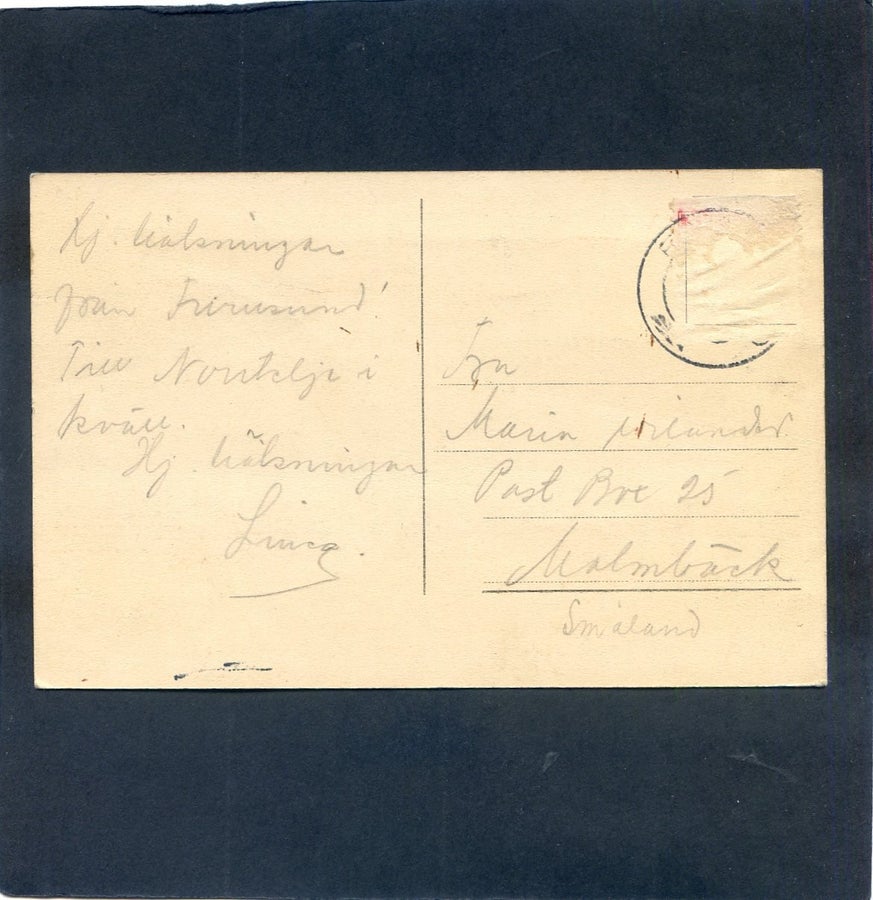 Hj. hälsningar
från Furusund!
Till Norrtelje i
kväll.
Hj. hälsningar
Fru
Maria
Post Box 25
Malmbäck
Småland